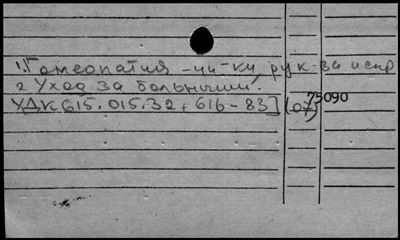 1. Гомеопатия - уч-ки, рук-ва и спр
2 Уход за больными.
УДК 615.015.32 + 616-83](07) 5090